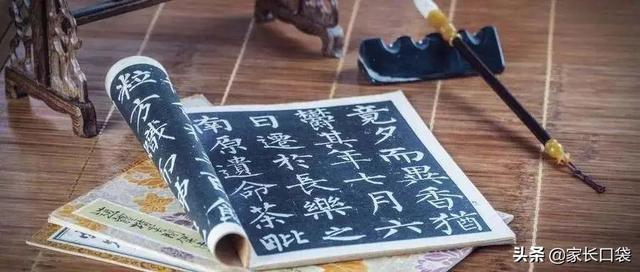 竟夕而異香猶
鬱其年七月六
日遷於長樂之
南原遺命荼毗
粒方熾
头条 @家长口袋